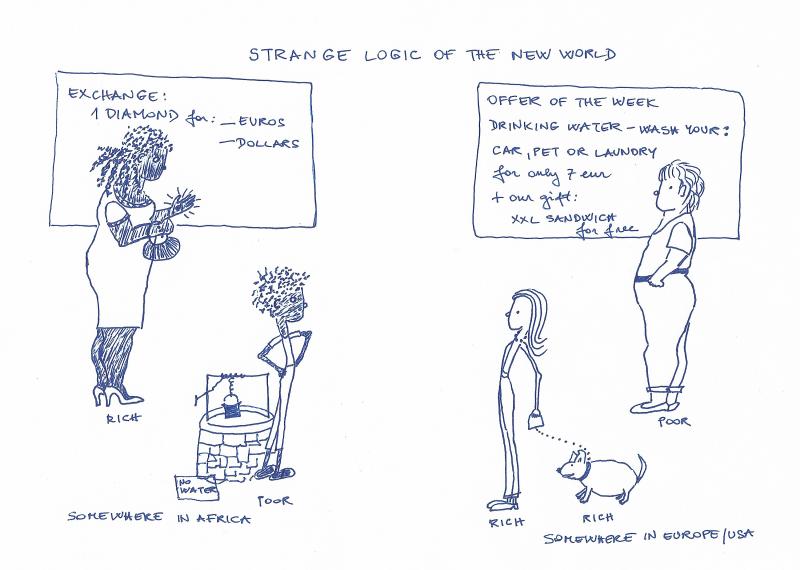 STRANGE LOGIC OF THE NEW WORLD
EXCHANGE:
1 DIAMOND for: — EUROS
— DOLLARS
RICH
NO
WATER
POOR
SOMEWHERE IN AFRICA
OFFER OF THE WEEK
DRINKING WATER – WASH YOUR:
CAR, PET OR LAUNDRY
for only 7 eur
+ our gift:
XXL SANDWICH
for free
POOR
RICH
RICH
SOMEWHERE IN EUROPE/USA